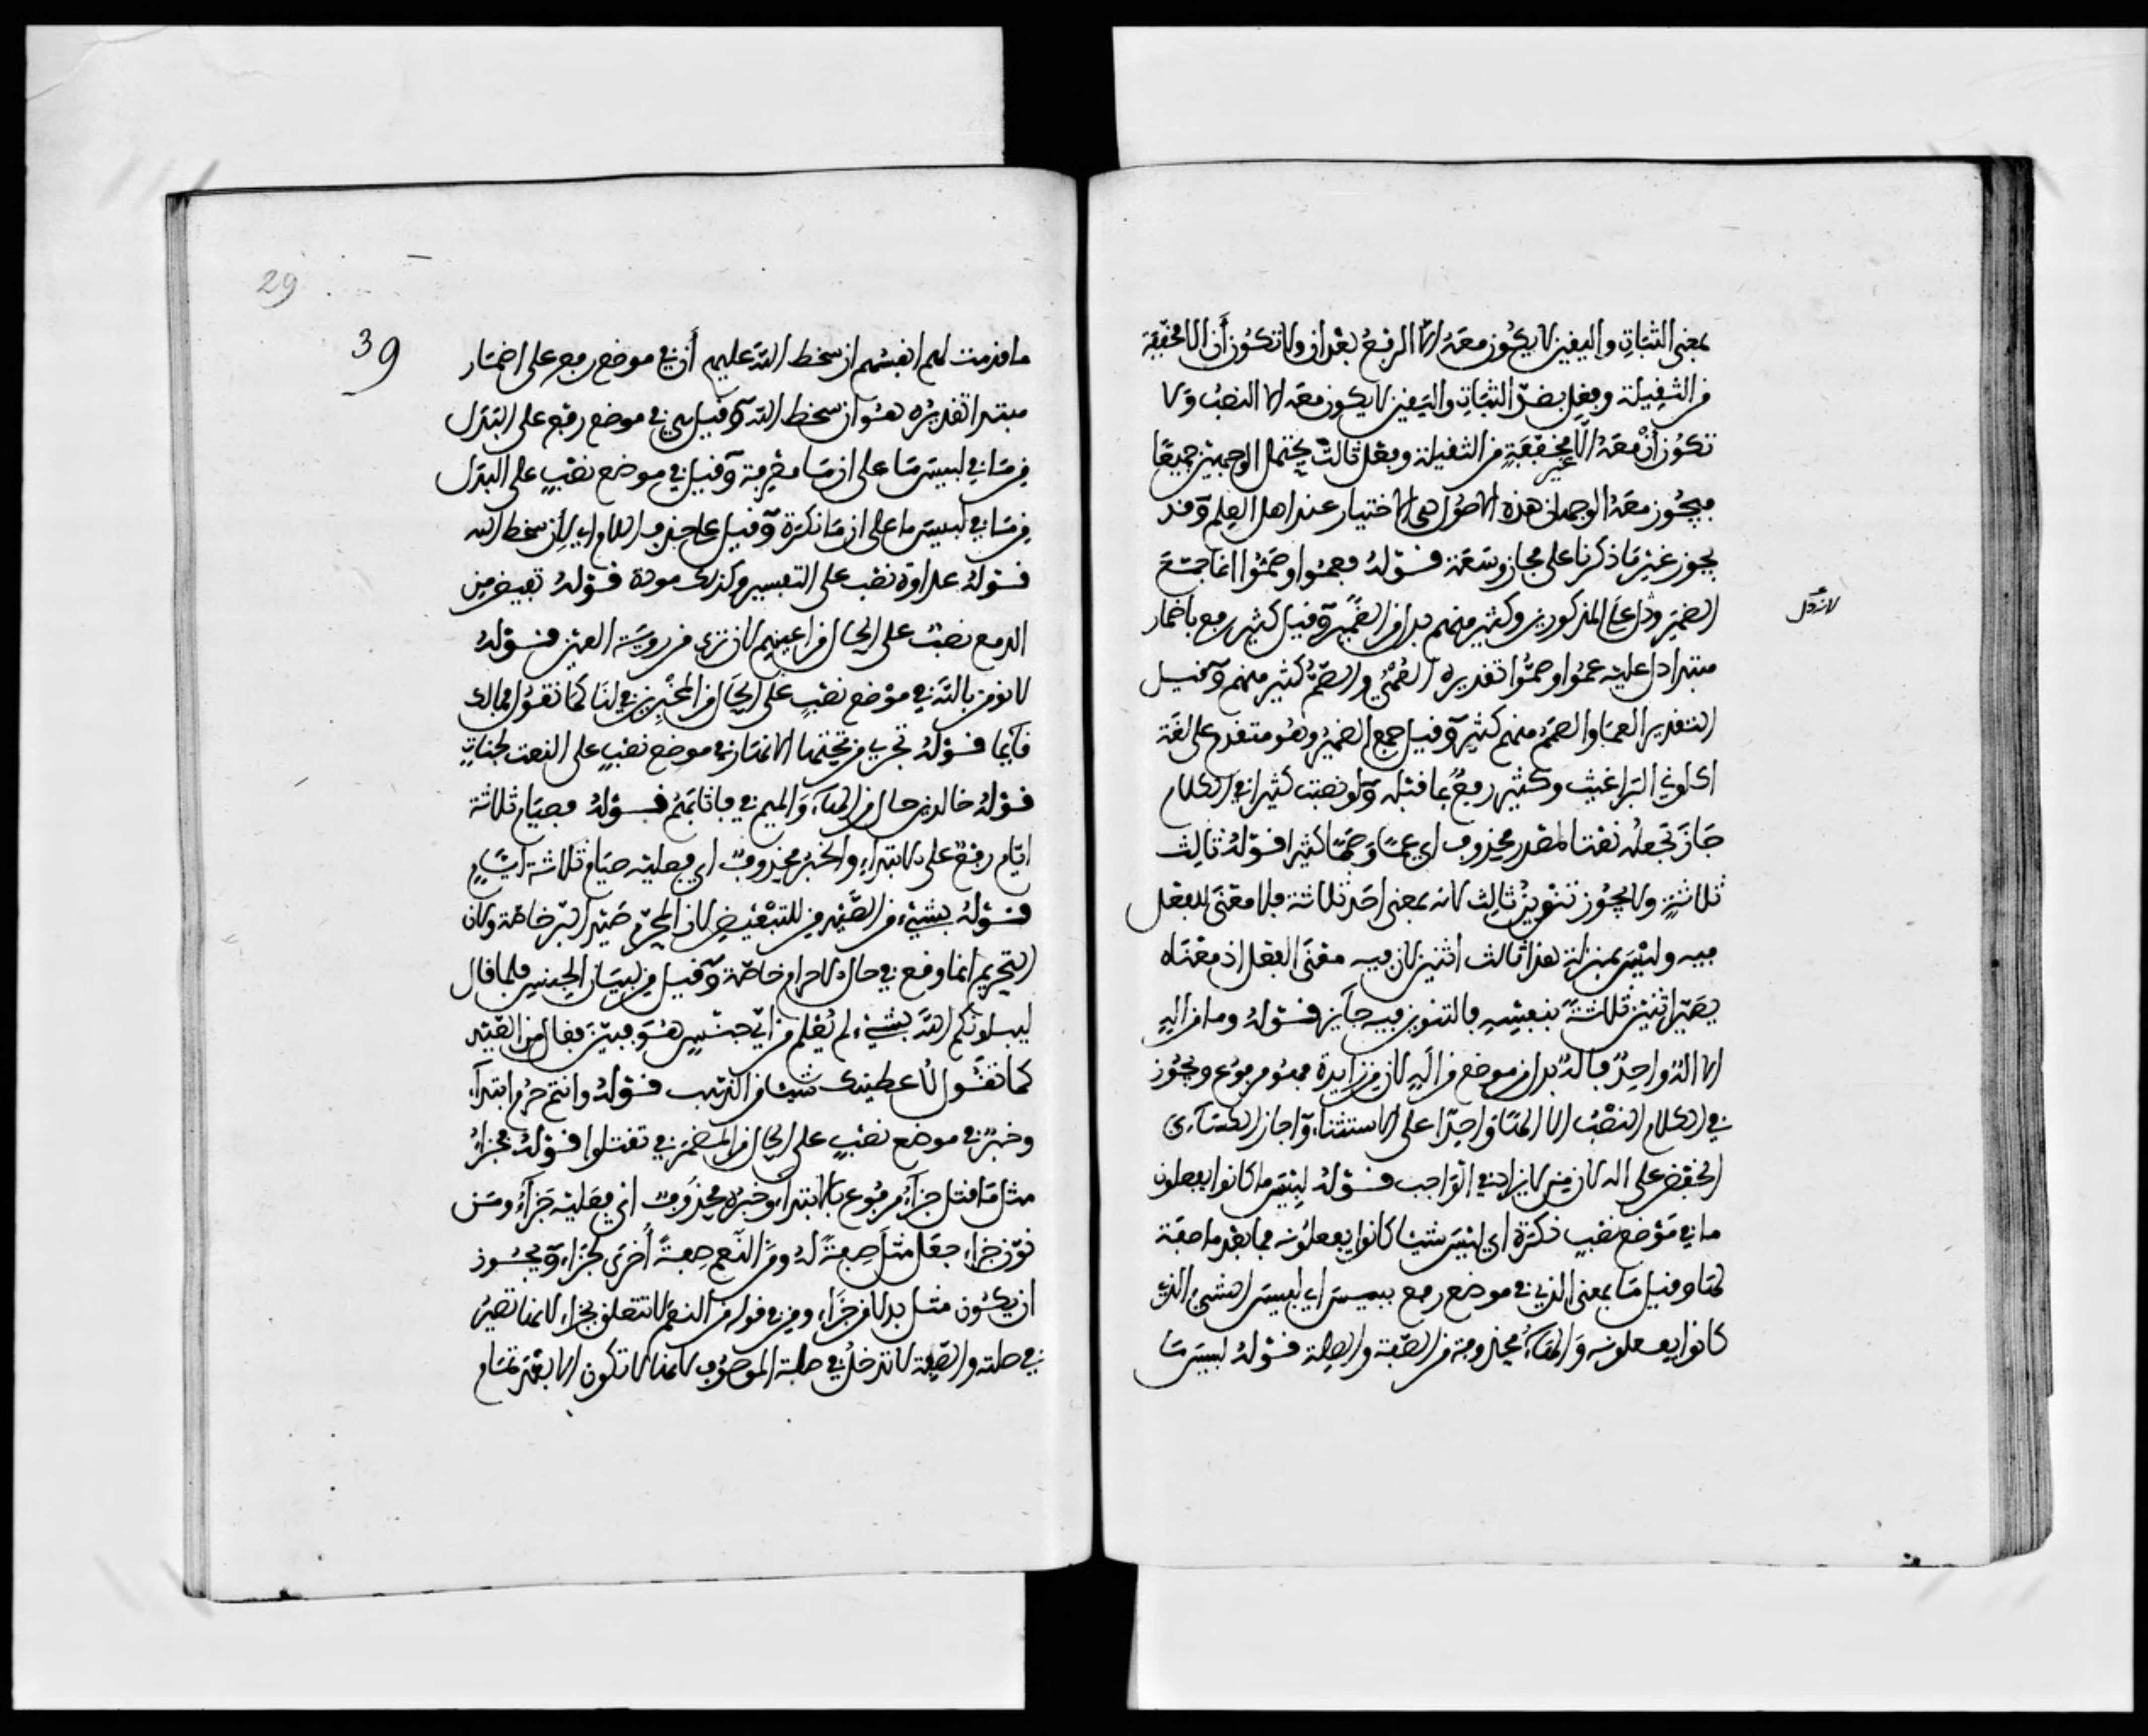 بمعنى الثبات واليقين لا يكون معه الا الرفع بعد ان ولا تكون أن الا مخففة
من الثقيلة وفعل بضد الثبات واليقين لا يكون معه الا النصب ولا
تكون أن معه الا غير مخففة من الثقيلة وفعل ثالث يحتمل الوجهين جميعا
فيجوز معه الوجهان هذه الاصول هي الاختيار عند اهل العلم وقد
يجوز غير ما ذكرنا على مجاز وسعة قوله فعموا وصموا انما جمع
الضمير ردا على المذكورين وكثير منهم بدل من الضمير وقيل كثير رفع باضمار
لانه دل
مبتدا دل عليه عموا وصموا تقديره العمي والصم كثير منهم وقيل
التقدير العما والصمم منهم كثير وقيل جمع الضمير وهو متقدم على لغة
اكلوني البراغيث وكثير رفع بما قبله ولو نصبت كثيرا في الكلام
جاز تجعله نعتا لمصدر محذوف اي عما وصمّا كثيرا قوله ثالث
ثلاثة ولا يجوز تنوين ثالث لانه بمعنى احد ثلاثة فلا معنى للفعل
فيه وليس بمنزلة هذا ثالث اثنين لان فيه معنى الفعل اذ معناه
يصير اثنين ثلاثة بنفسه فالتنوين فيه جايز قوله وما من اله
الا اله واحد فاله بدل من موضع من اله لان من زايدة فهو مرفوع ويجوز
في الكلام النصب الا الها واحدا على الاستثناء واجاز الكساءي
الخفض على اله لان من لا يزاد في الواجب قوله لبيس ما كانوا يفعلون
ما في موضع نصب نكرة اي لبيس شيئا كانوا يفعلونه فما بعد ما صفة
لها وقيل ما بمعنى الذي في موضع رفع ببيس اي لبيس الشيء الذي
كانوا يفعلونه والهاء محذوفة من الصفة والصلة قوله لبيس ما
29
39
ما قدمت لهم انفسهم ان سخط الله عليهم أن في موضع رفع على اضمار
مبتدا تقديره هو ان سخط الله وقيل هي في موضع رفع على البدل
من ما في لبيس ما على ان ما معرفة وقيل في موضع نصب على البدل
من ما في لبيس ما على ان ما نكرة وقيل على حذف اللام اي لأن سخط الله
قوله عداوة نصب على التفسير وكذلك مودة قوله تفيض من
الدمع نصب على الحال من اعينهم لان ترى من روية العين قوله
لا نومن بالله في موضع نصب على الحال من المخبرين في لنا كما تقول ما لك
قايما قوله تجري من تحتها الانهار في موضع نصب على النعت لجنات
قوله خالدين حال من الهاء والميم في فاثابهم قوله فصيام ثلاثة
ايام رفع على الابتداء والخبر محذوف اي فعليه صيام ثلاثة ايام
قوله بشيء من الصيد من للتبعيض لان المحرم صيد البر خاصة ولان
التحريم انما وقع في حال الاحرام خاصة وقيل من لبيان الجنس فلما قال
ليبلونكم الله بشيء لم يعلم من اي جنس هو فبين فقال من الصيد
كما تقول لأعطينك شيئا من الذهب قوله وانتم حرم ابتداء
وخبر في موضع نصب على الحال من المضمر في تقتلوا قوله فجزاء
مثل ما قتل جزاء مرفوع بالابتداء وخبره محذوف اي فعليه جزاء ومن
نون جزاء جعل مثل صفة له ومن النعم صفة أخرى لجزاء ويجوز
ان يكون مثل بدلا من جزاء ومن في قوله من النعم لا تتعلق بجزاء لانها تصير
في صلته والصفة لا تدخل في صلة الموصوف لانها لا تكون الا بعد تمام